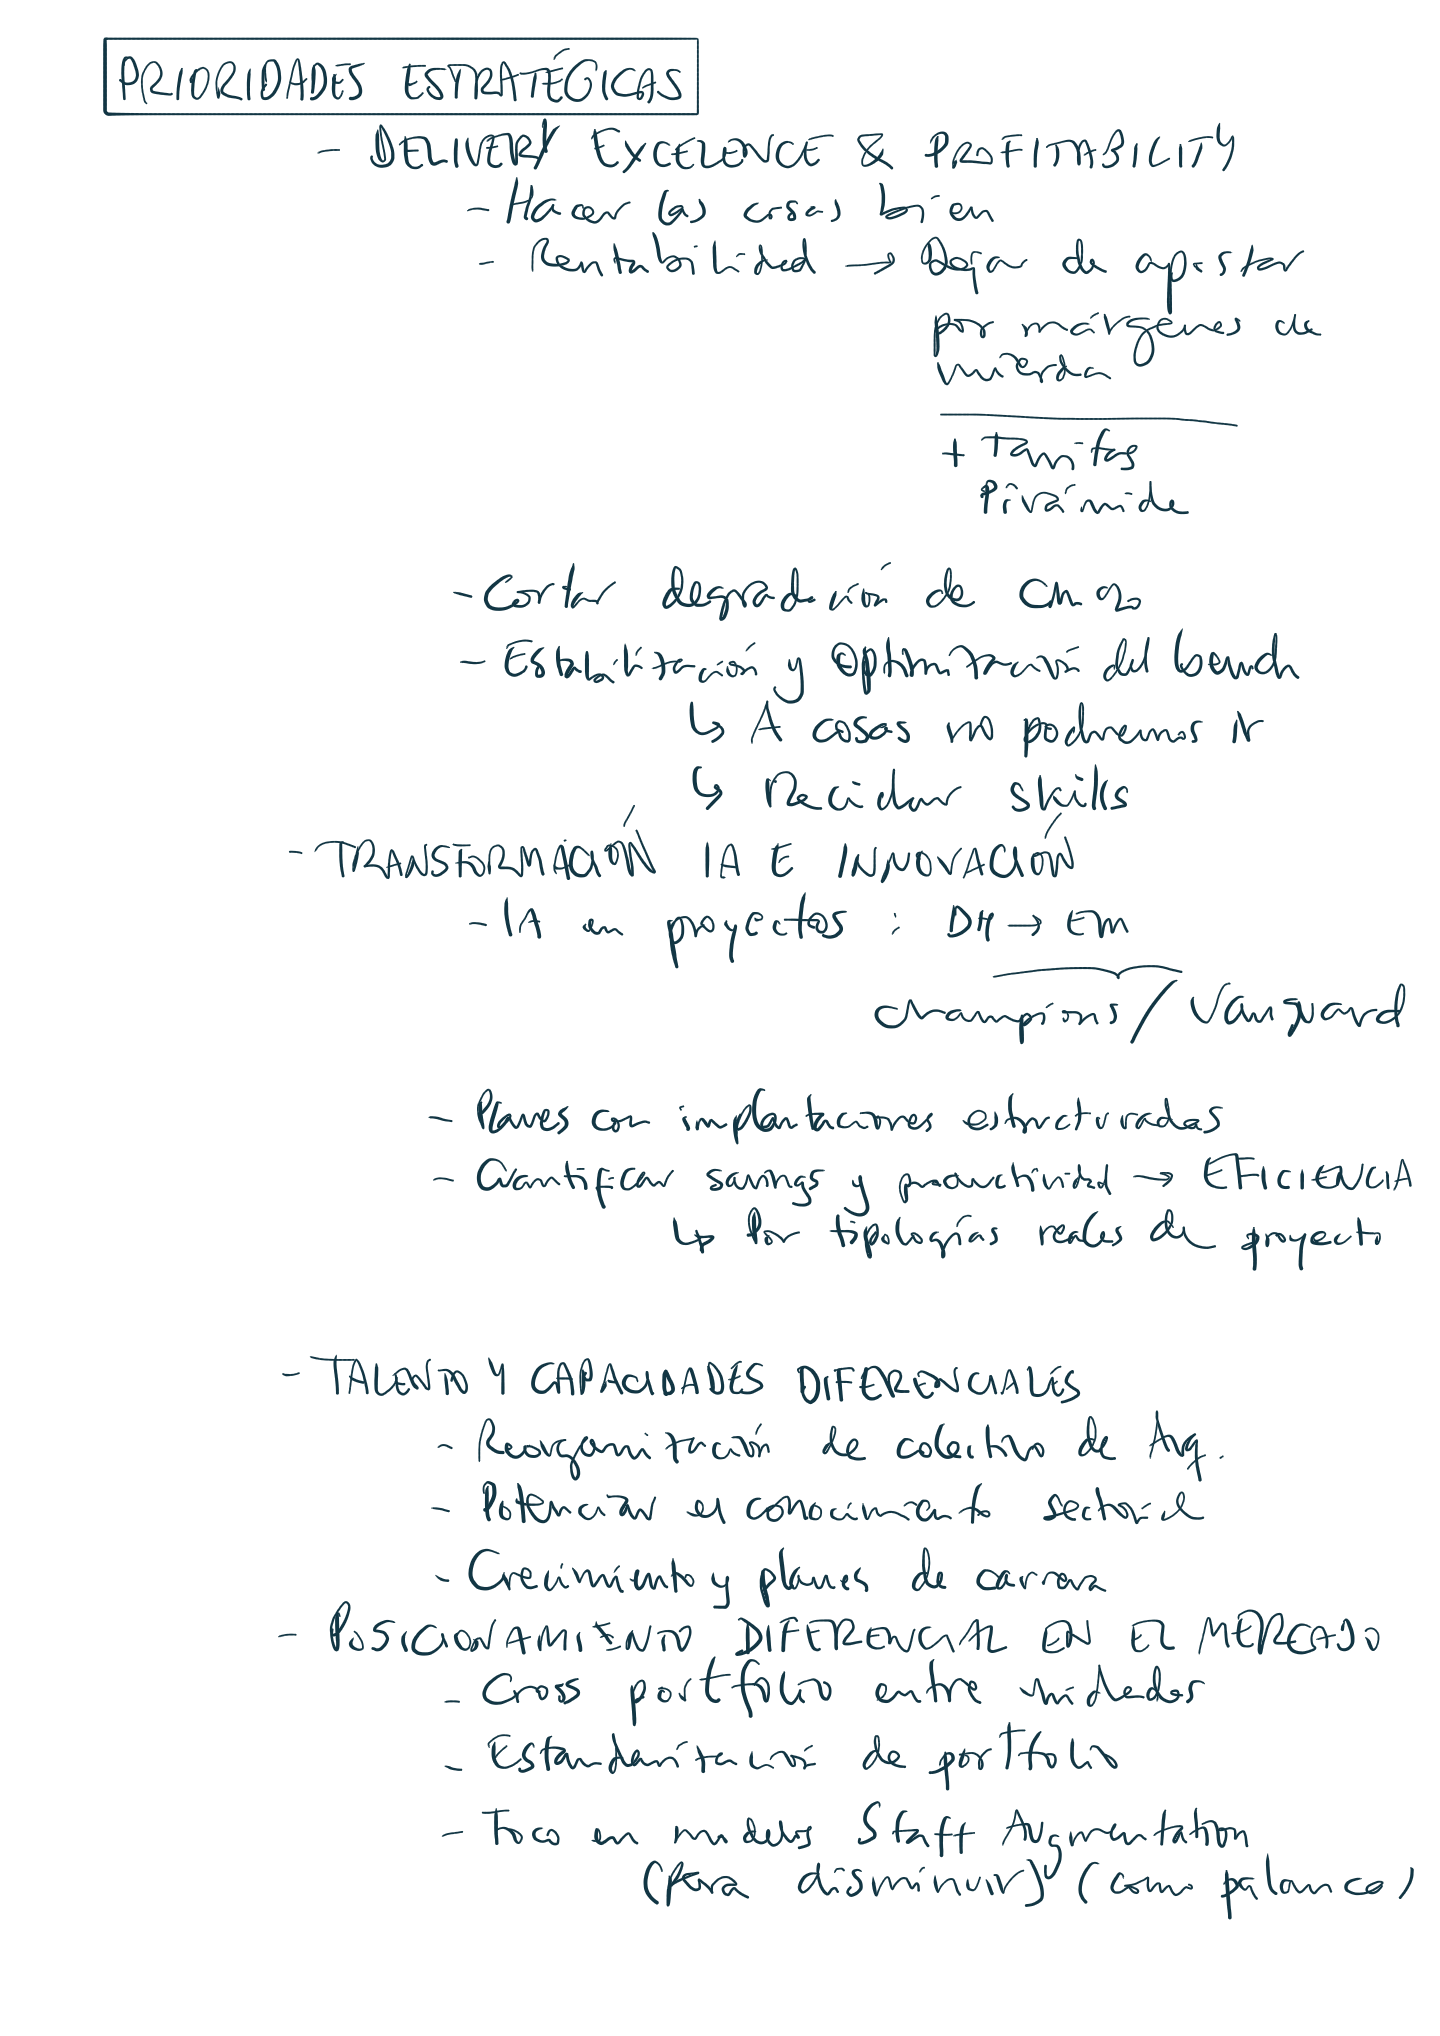 PRIORIDADES ESTRATÉGICAS
- DELIVERY EXCELENCE & PROFITABILITY
- Hacer las cosas bien
- Rentabilidad → Dejar de apostar
por márgenes de
mierda
+ Tarifas
Pirámide
- Cortar degradación de CM %
- Estabilización y Optimización del bench
↳ A cosas no podremos ir
↳ Reciclar skills
- TRANSFORMACIÓN IA E INNOVACIÓN
- IA en proyectos : DM → EM
champions / Vanguard
- Planes con implantaciones estructuradas
- Cuantificar savings y productividad → EFICIENCIA
↳ Por tipologías reales de proyecto
- TALENTO Y CAPACIDADES DIFERENCIALES
- Reorganización de colectivo de Arq.
- Potenciar el conocimiento sectorial
- Crecimiento y planes de carrera
- POSICIONAMIENTO DIFERENCIAL EN EL MERCADO
- Cross portfolio entre unidades
- Estandarización de portfolio
- Foco en modelos Staff Augmentation
(para disminuir) (como palanca)